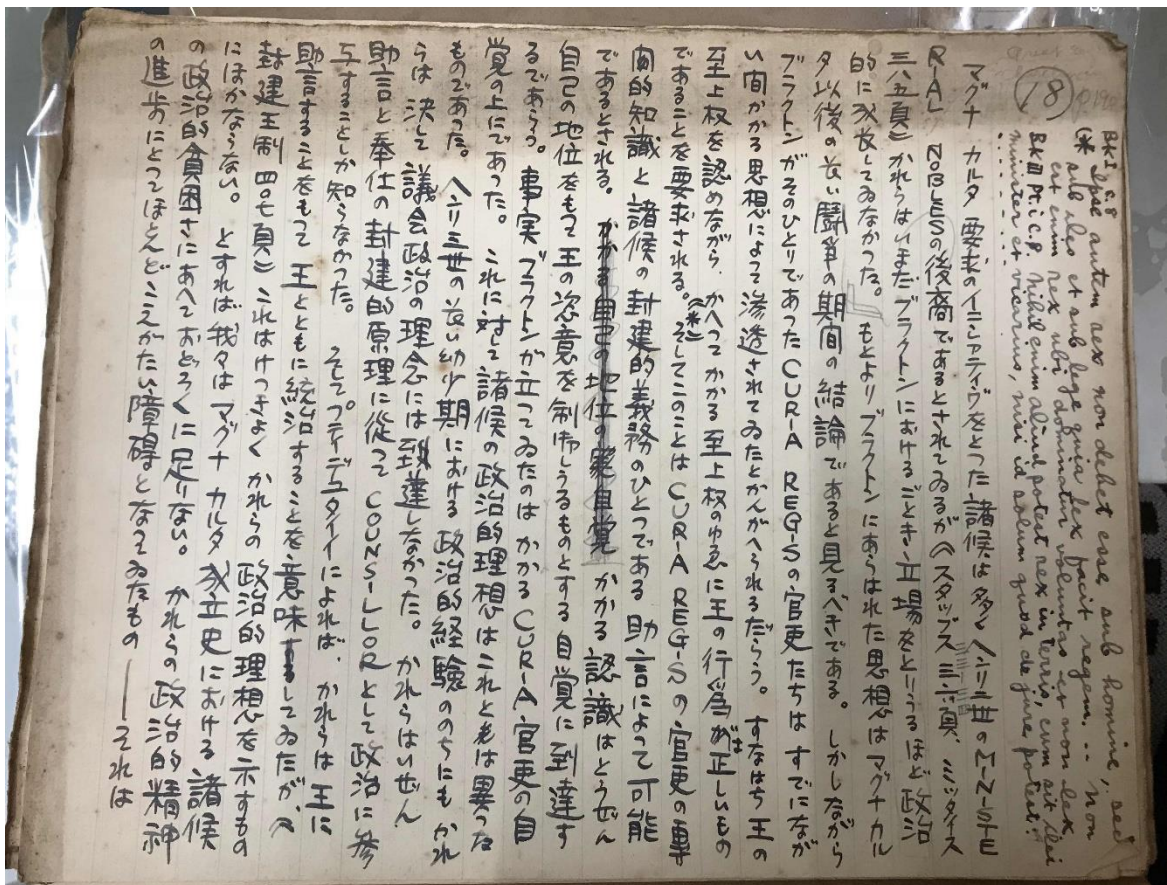 18
BK I c.8
(* Ipse autem rex non debet esse sub homine, sed
sub deo et sub lege quia lex facit regem. ... non
est enim rex ubi dominatur voluntas et non lex
BK III Pt. i C.9. Nihil enim aliud potest rex in terris, cum sit dei
minister et vicarius, nisi id solum quod de jure potest.
マグナ カルタ 要求のイニシアティヴをとった諸侯は多くヘンリ二世のMINISTE
RIAL NOBLESの後裔であるとされてゐるが《スタッブス 三六頁、ミッタイス
三八五頁》かれらはいまだブラクトンにおけるごとき立場をとりうるほど政治
的に成長してゐなかった。もとよりブラクトンにあらはれた思想はマグナカル
タ以後の長い鬪争の期間の結論であると見るべきである。しかしながら
ブラクトンがそのひとりであったCURIA REGISの官吏たちはすでになが
い間かかる思想によって滲透されてゐたとかんがへられるだらう。すなはち王の
至上权を認めながら、かへってかかる至上权のゆゑに王の行爲が正しいもの
であることを要求される。(*)そしてこのことはCURIA REGISの官吏の専
門的知識と諸侯の封建的義務のひとつである助言によって可能
であるとされる。かかる自己の地位の自覚 かかる認識はとうぜん
自己の地位をもって王の恣意を制御しうるものとする自覚に到達す
るであらう。事実ブラクトンが立ってゐたのはかかるCURIA官吏の自
覚の上にであった。これに対して諸侯の政治的理想はこれとは異った
ものであった。ヘンリ三世の長い幼少期における政治的経験ののちにもかれ
らは決して議会政治の理念には到達しなかった。かれらはいぜん
助言と奉仕の封建的原理に従ってCOUNSILLORとして政治に参
与することしか知らなかった。そしてプティデュタイイによれば、かれらは王に
助言することをもって王とともに統治することを意味してゐたが、《
封建王制 四〇七頁》これはけっきょくかれらの政治的理想を示すもの
にほかならない。とすれば我々はマグナ カルタ成立史における諸侯
の政治的貧困さにあへておどろくに足りない。かれらの政治的精神
の進歩にとってほとんどこえがたい障碍となってゐたもの——それは